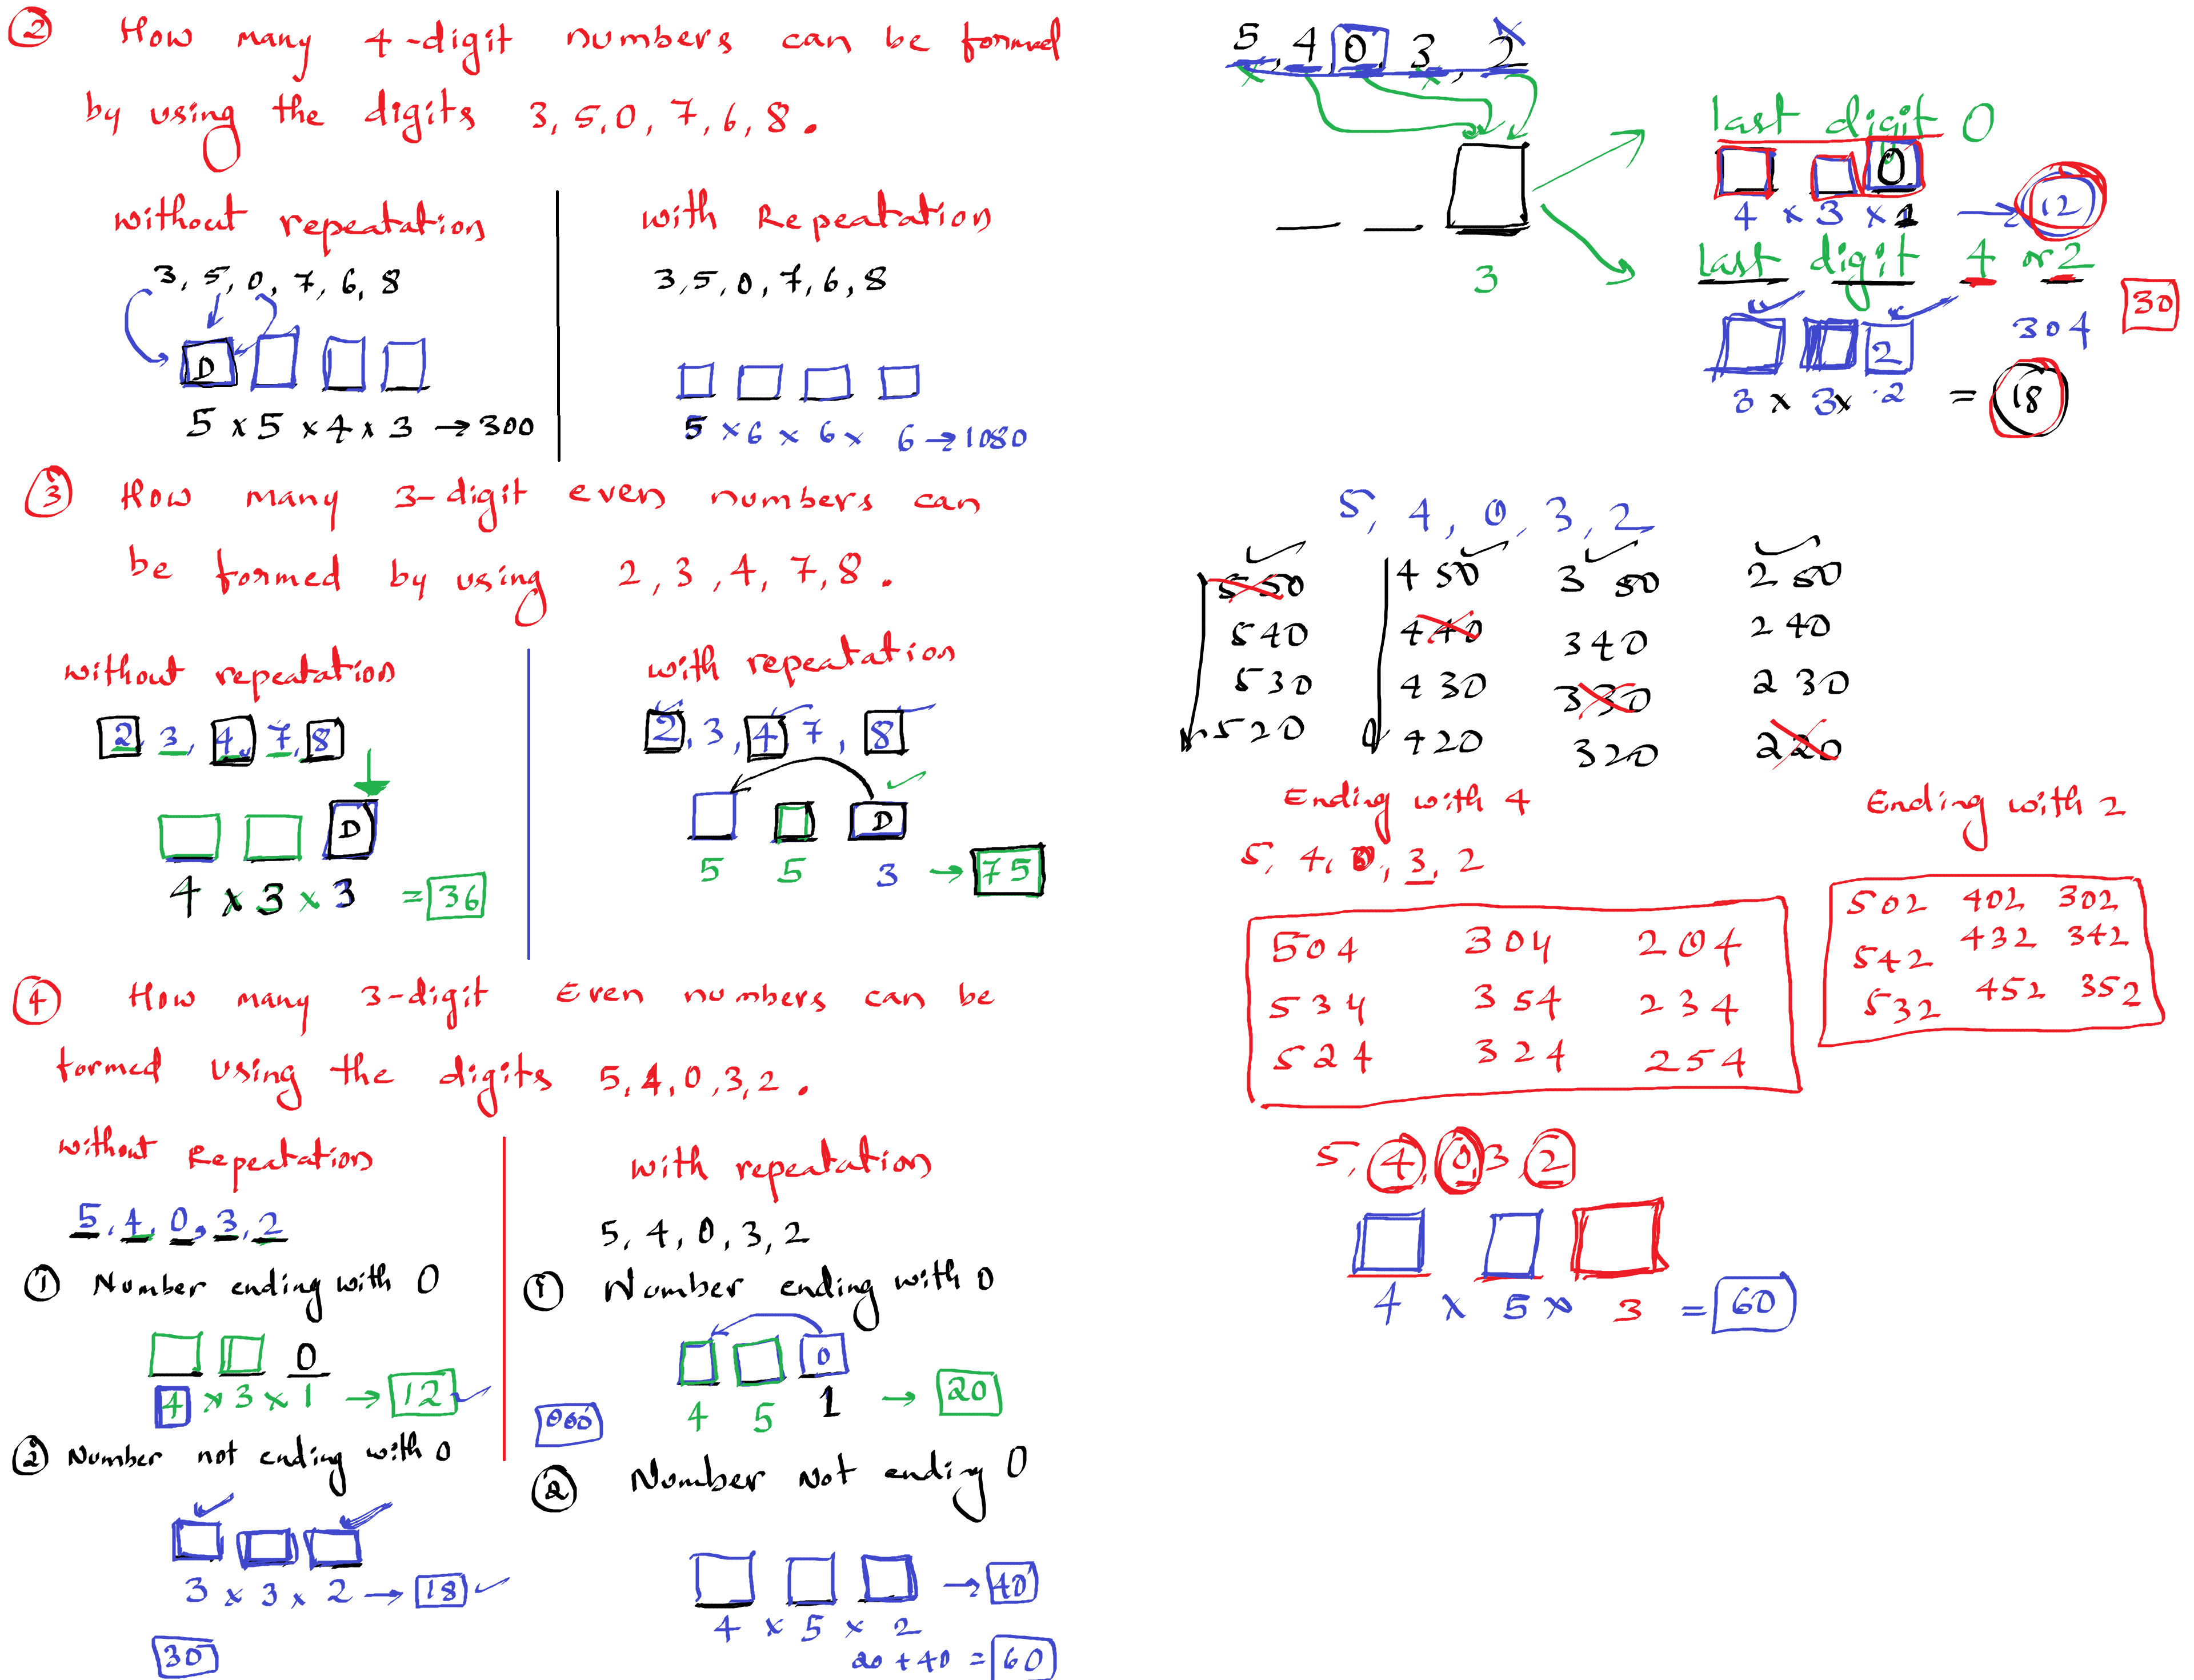 ② How many 4-digit numbers can be formed
by using the digits 3, 5, 0, 7, 6, 8.
without repeatation
3, 5, 0, 7, 6, 8
D
5 x 5 x 4 x 3 → 300
with Repeatation
3, 5, 0, 7, 6, 8
5 x 6 x 6 x 6 → 1080
③ How many 3-digit even numbers can
be formed by using 2, 3, 4, 7, 8.
without repeatation
2, 3, 4, 7, 8
D
4 x 3 x 3 = 36
with repeatation
2, 3, 4, 7, 8
D
5 5 3 → 75
④ How many 3-digit Even numbers can be
formed using the digits 5, 4, 0, 3, 2.
without Repeatation
5, 4, 0, 3, 2
① Number ending with 0
0
4 x 3 x 1 → 12
② Number not ending with 0
3 x 3 x 2 → 18
30
with repeatation
5, 4, 0, 3, 2
① Number ending with 0
0
4 5 1 → 20
000
② Number Not ending 0
4 x 5 x 2 → 40
20 + 40 = 60
5, 4, 0, 3, 2
3
last digit 0
0
4 x 3 x 1 → 12
last digit 4 or 2
30
304
2
3 x 3 x 2 = 18
5, 4, 0, 3, 2
550 450 350 250
540 440 340 240
530 430 330 230
520 420 320 220
Ending with 4
5, 4, 0, 3, 2
504 304 204
534 354 234
524 324 254
Ending with 2
502 402 302
542 432 342
532 452 352
5, 4, 0, 3, 2
4 x 5 x 3 = 60